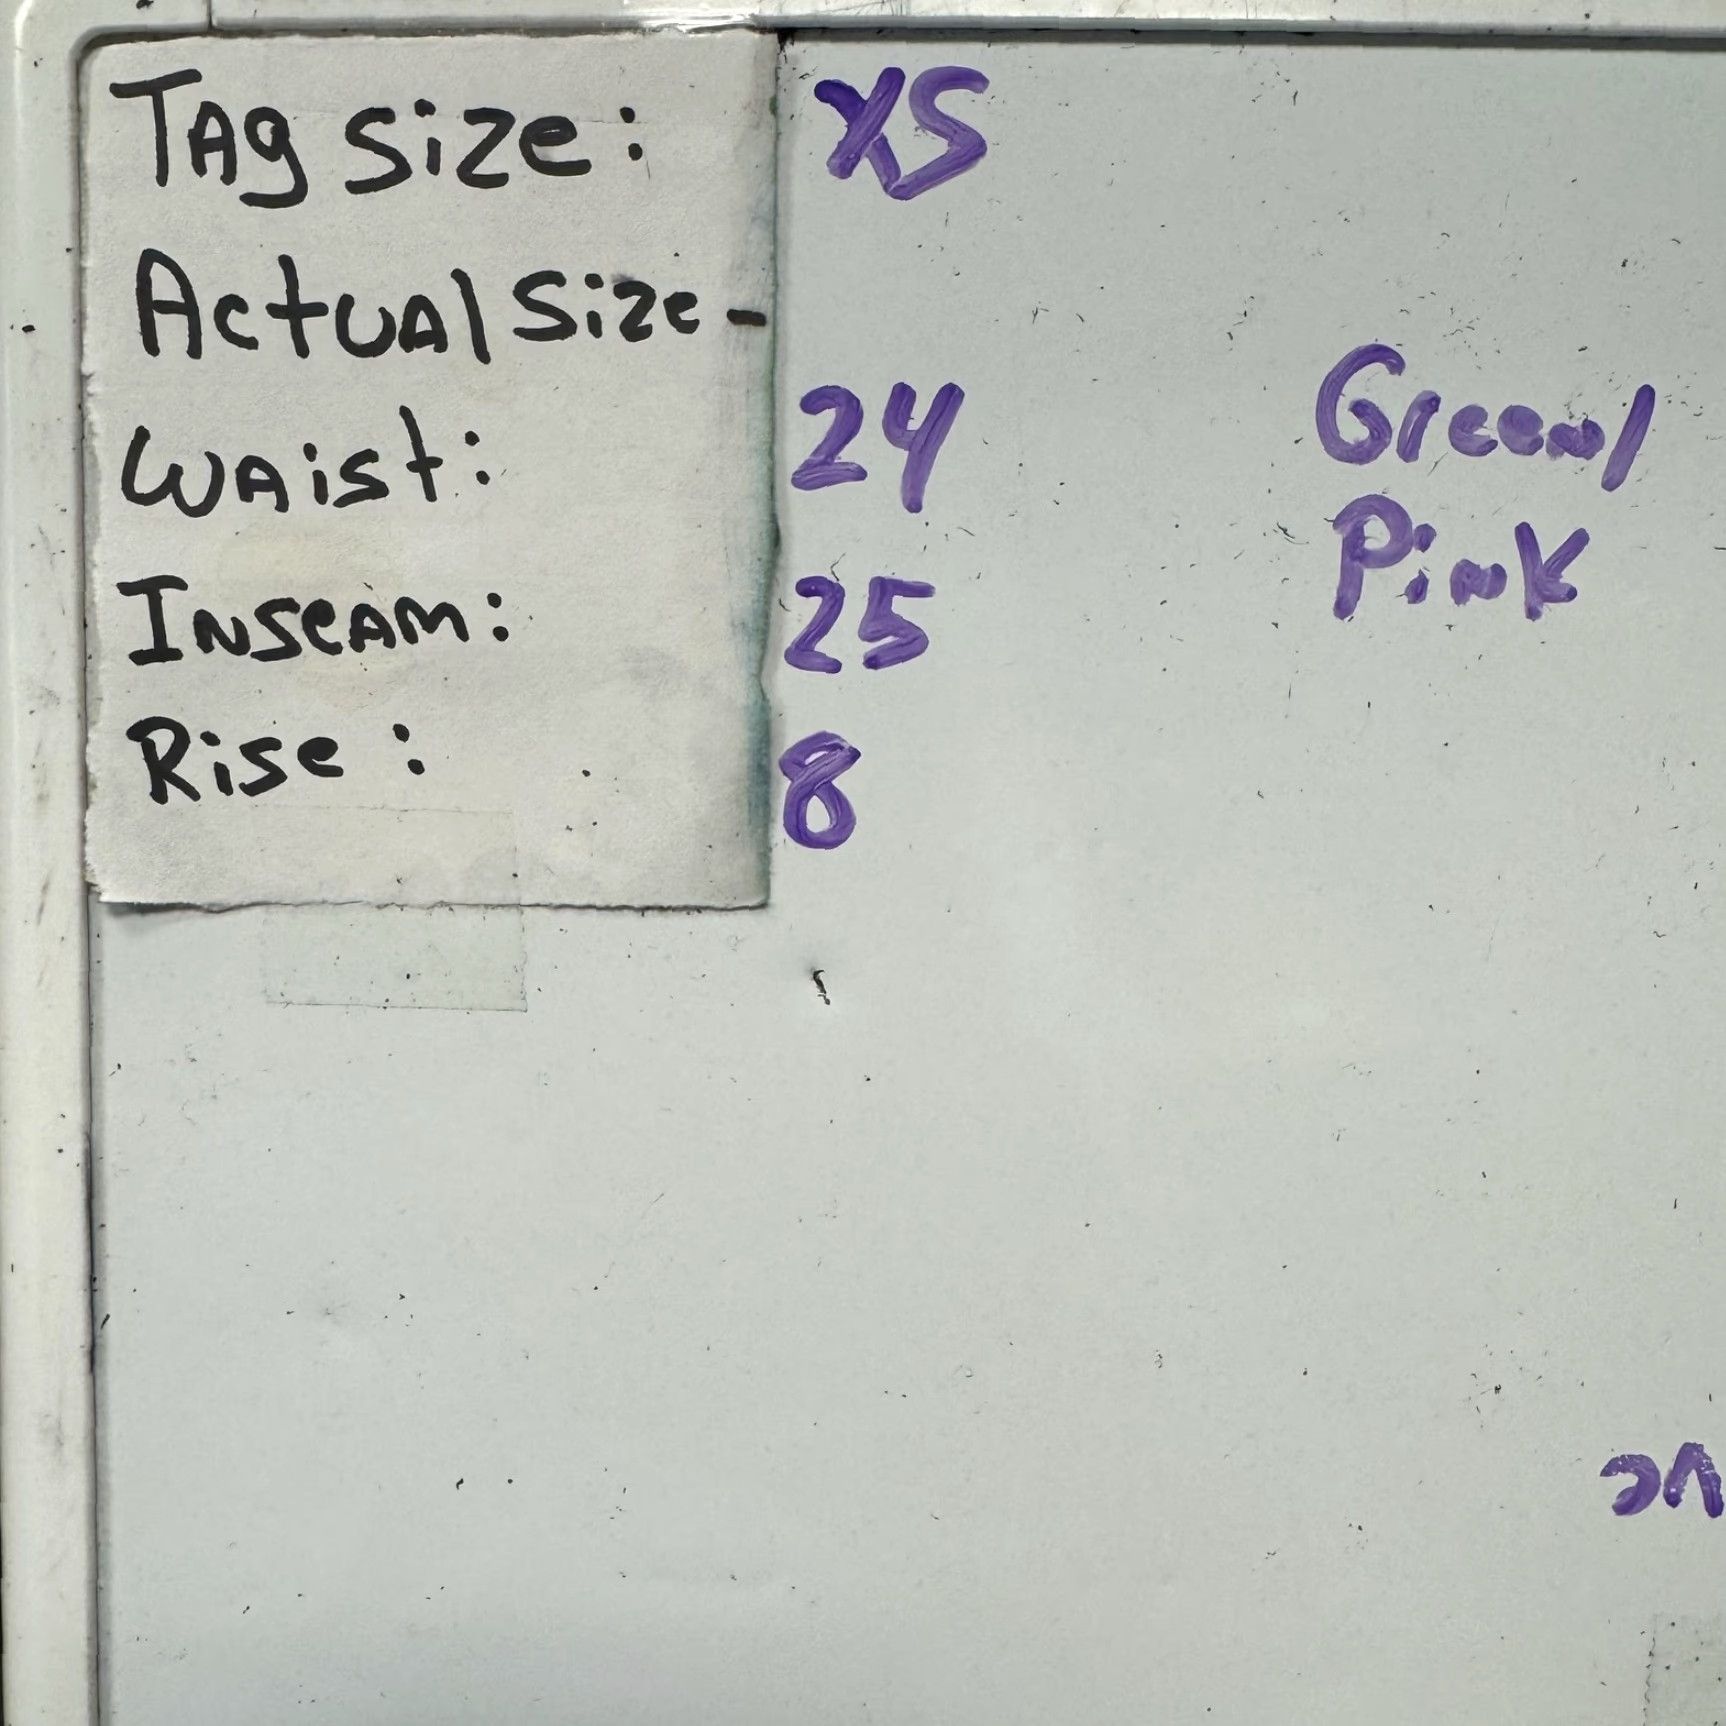 TAg size: XS
ActUAl Size -
WAist: 24
Green/
Pink
InseAm: 25
Rise: 8